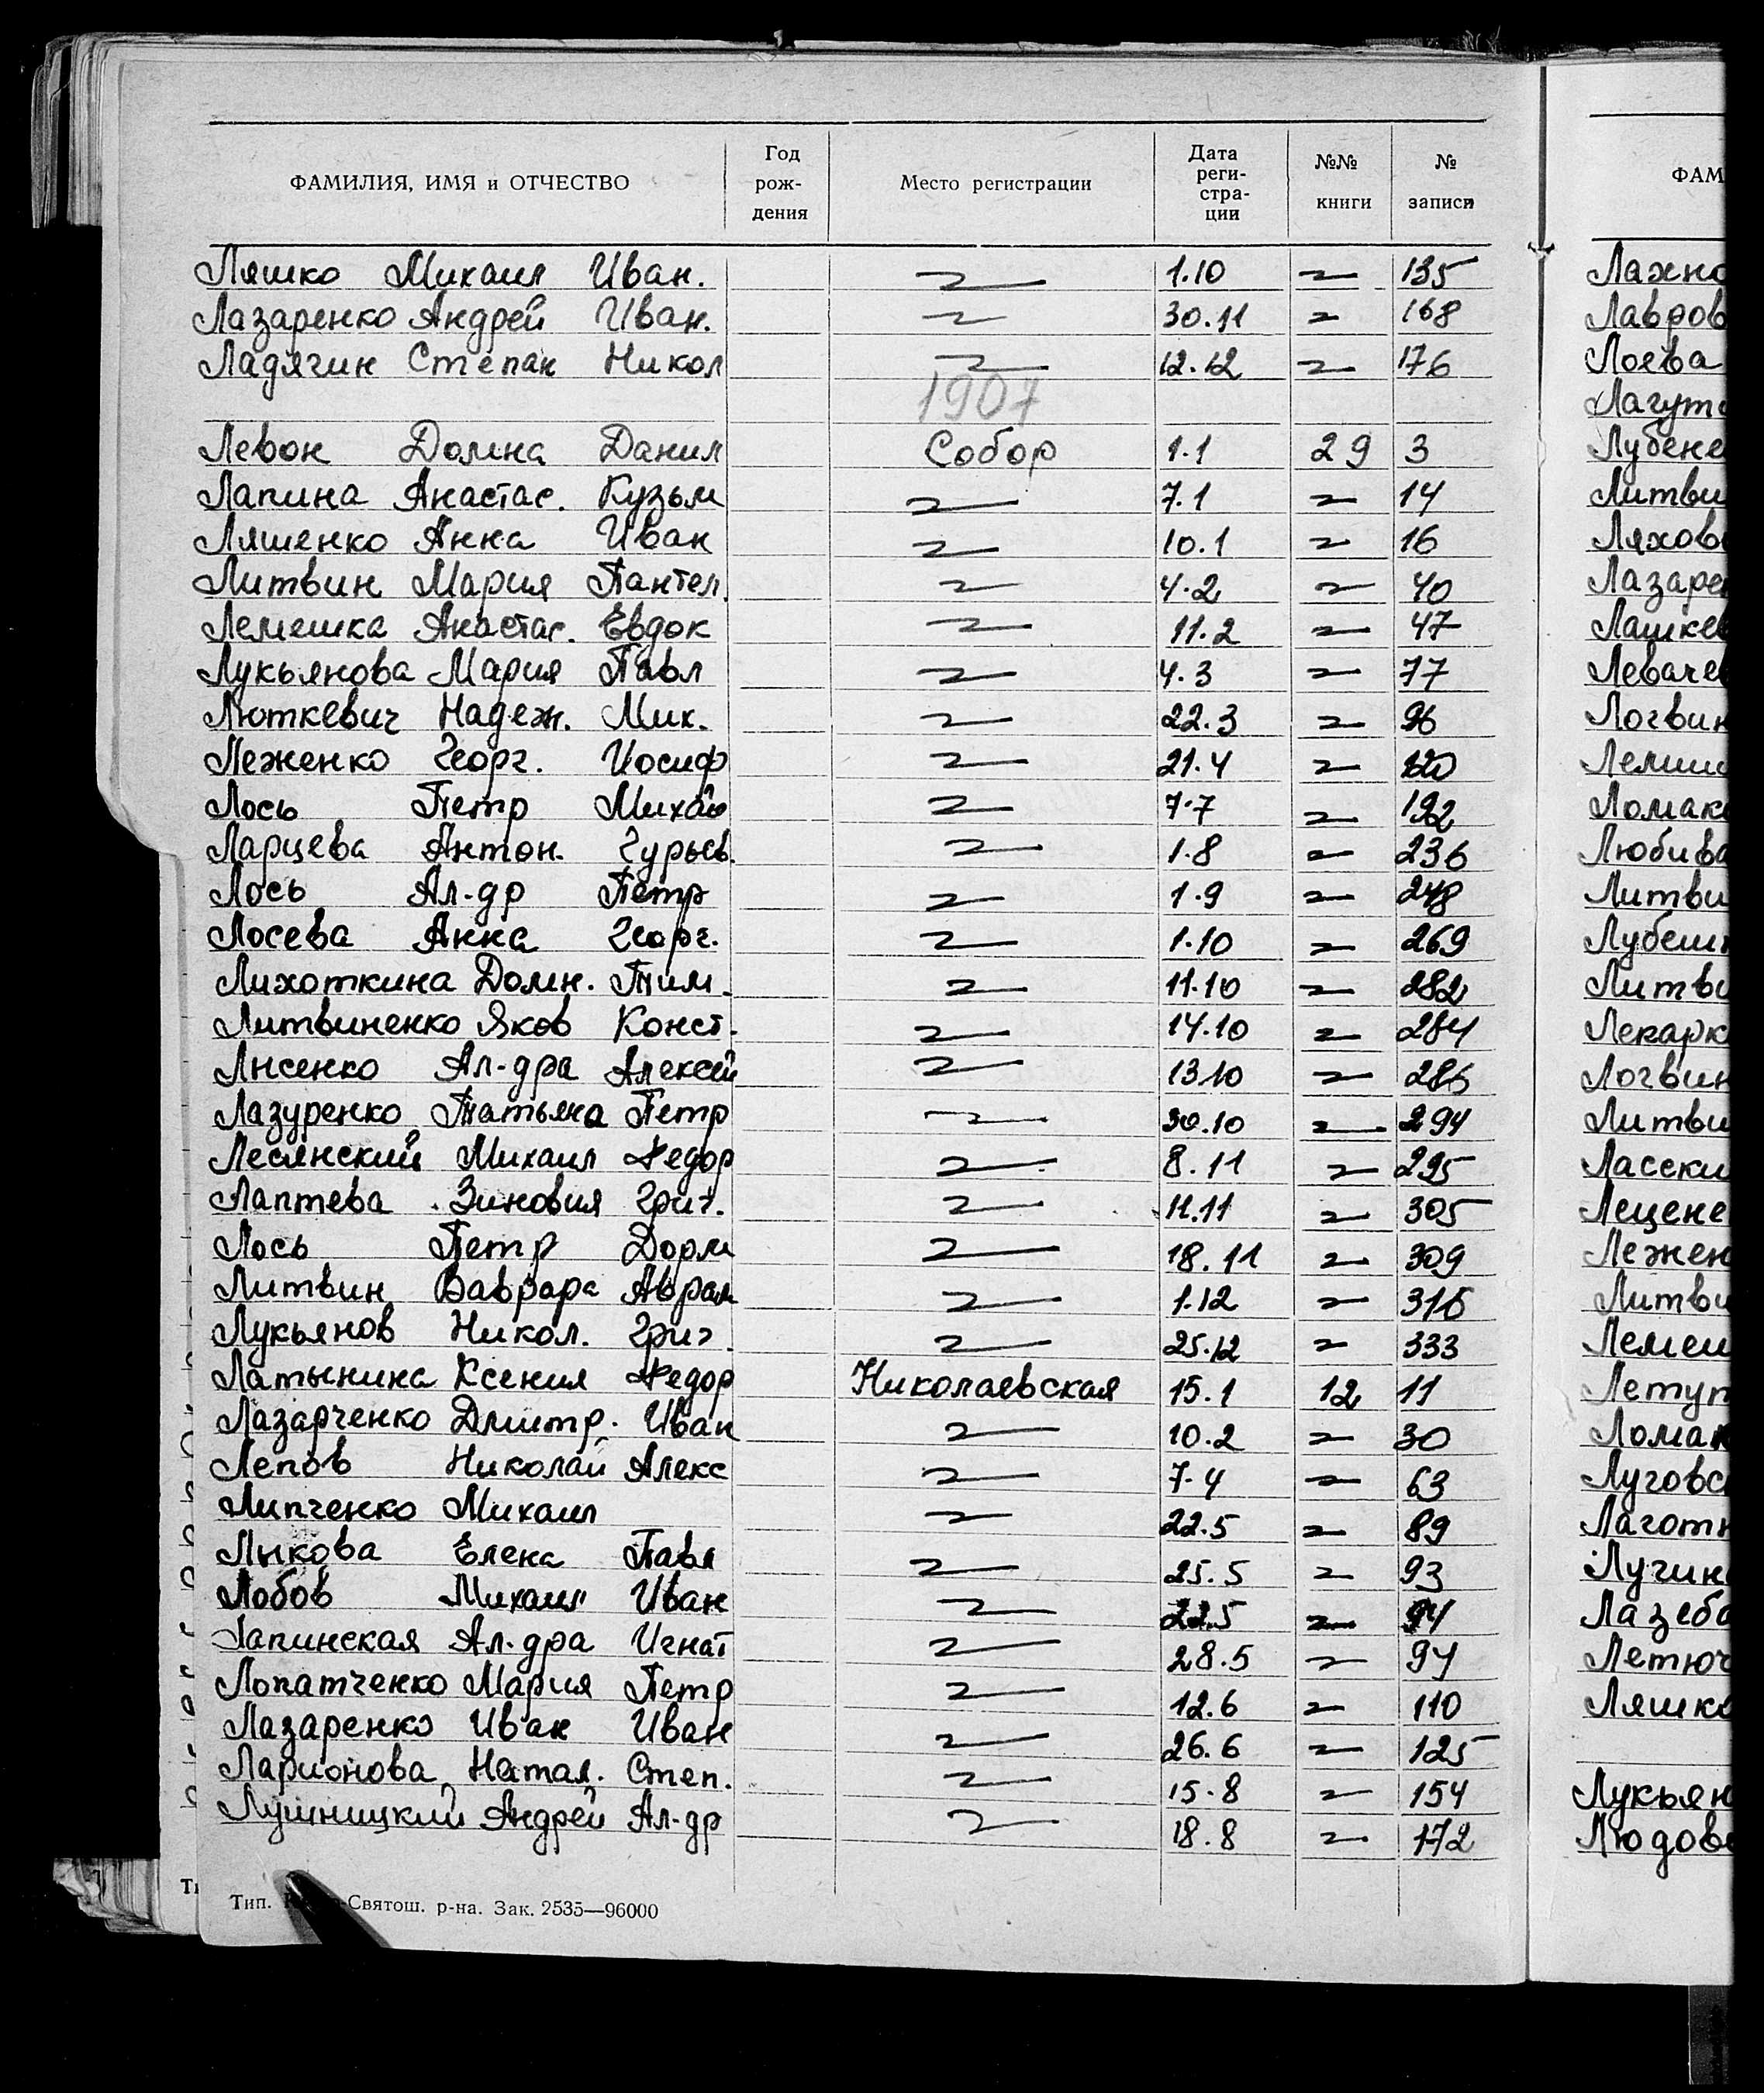 ФАМИЛИЯ, ИМЯ и ОТЧЕСТВО Год рож- дения Место регистрации Дата реги- стра- ции №№ книги № записи
Ляшко Михаил Иван. 〃 1.10 〃 135
Лазаренко Андрей Иван. 〃 30.11 〃 168
Ладягин Степан Никол 〃 12.12 〃 176
1907
Левон Домна Данил Собор 1.1 29 3
Лапина Анастас. Кузьм 〃 7.1 〃 14
Ляшенко Анна Иван 〃 10.1 〃 16
Литвин Мария Пантел. 〃 4.2 〃 40
Лемешка Анастас. Евдок 〃 11.2 〃 47
Лукьянова Мария Павл 〃 4.3 〃 77
Люткевич Надеж. Мих. 〃 22.3 〃 96
Леженко Георг. Иосиф 〃 21.4 〃 120
Лось Петр Михай 〃 7.7 〃 192
Ларцева Антон. Гурьев. 〃 1.8 〃 236
Лось Ал-др Петр 〃 1.9 〃 248
Лосева Анна Георг. 〃 1.10 〃 269
Лихоткина Домн. Тим. 〃 11.10 〃 282
Литвиненко Яков Конст. 〃 14.10 〃 284
Лысенко Ал-дра Алексей 〃 13.10 〃 286
Лазуренко Татьяна Петр 〃 30.10 〃 294
Лесянский Михаил Федор 〃 8.11 〃 295
Лаптева Зиновия Григ. 〃 11.11 〃 305
Лось Петр Дорм 〃 18.11 〃 309
Литвин Варвара Аврам 〃 1.12 〃 316
Лукьянов Никол. Григ. 〃 25.12 〃 333
Латынина Ксения Федор Николаевская 15.1 12 11
Лазарченко Дмитр. Иван 〃 10.2 〃 30
Лепов Николай Алекс 〃 7.4 〃 63
Липченко Михаил 〃 22.5 〃 89
Лыкова Елена Павл 〃 25.5 〃 93
Лобов Михаил Иван 〃 22.5 〃 94
Лапинская Ал-дра Игнат 〃 28.5 〃 94
Лопатченко Мария Петр 〃 12.6 〃 110
Лазаренко Иван Иван 〃 26.6 〃 125
Ларионова Натал. Степ. 〃 15.8 〃 154
Лушницкий Андрей Ал-др 〃 18.8 〃 172
Тип. Святош. р-на. Зак. 2535—96000
ФАМ
Лахно
Лавров
Лоева
Лагут
Лубене
Литви
Ляхов
Лазаре
Лашкев
Левачев
Логвин
Леми
Ломак
Любив
Литви
Лубеш
Литв
Лекарк
Логвин
Литви
Ласски
Лецене
Лежен
Литви
Лемеш
Летуг
Ломак
Лугово
Лаготн
Лучин
Лазеб
Летюч
Ляшко
Лукьян
Людов